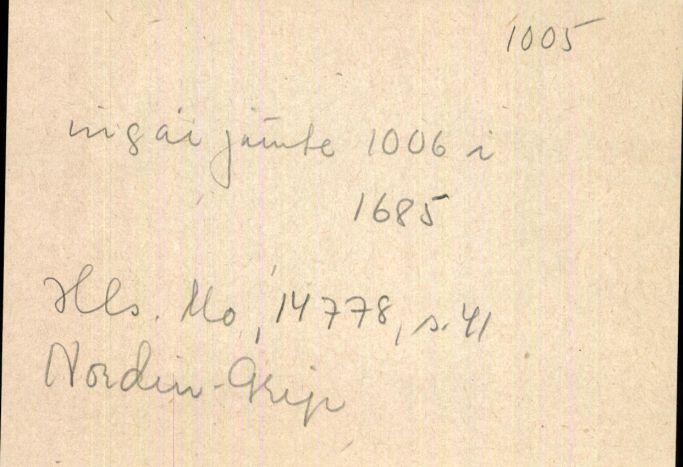 1005
ingår jämte 1006 i
1685
Hls. Mo, 14778, s. 41
Nordin-Grip